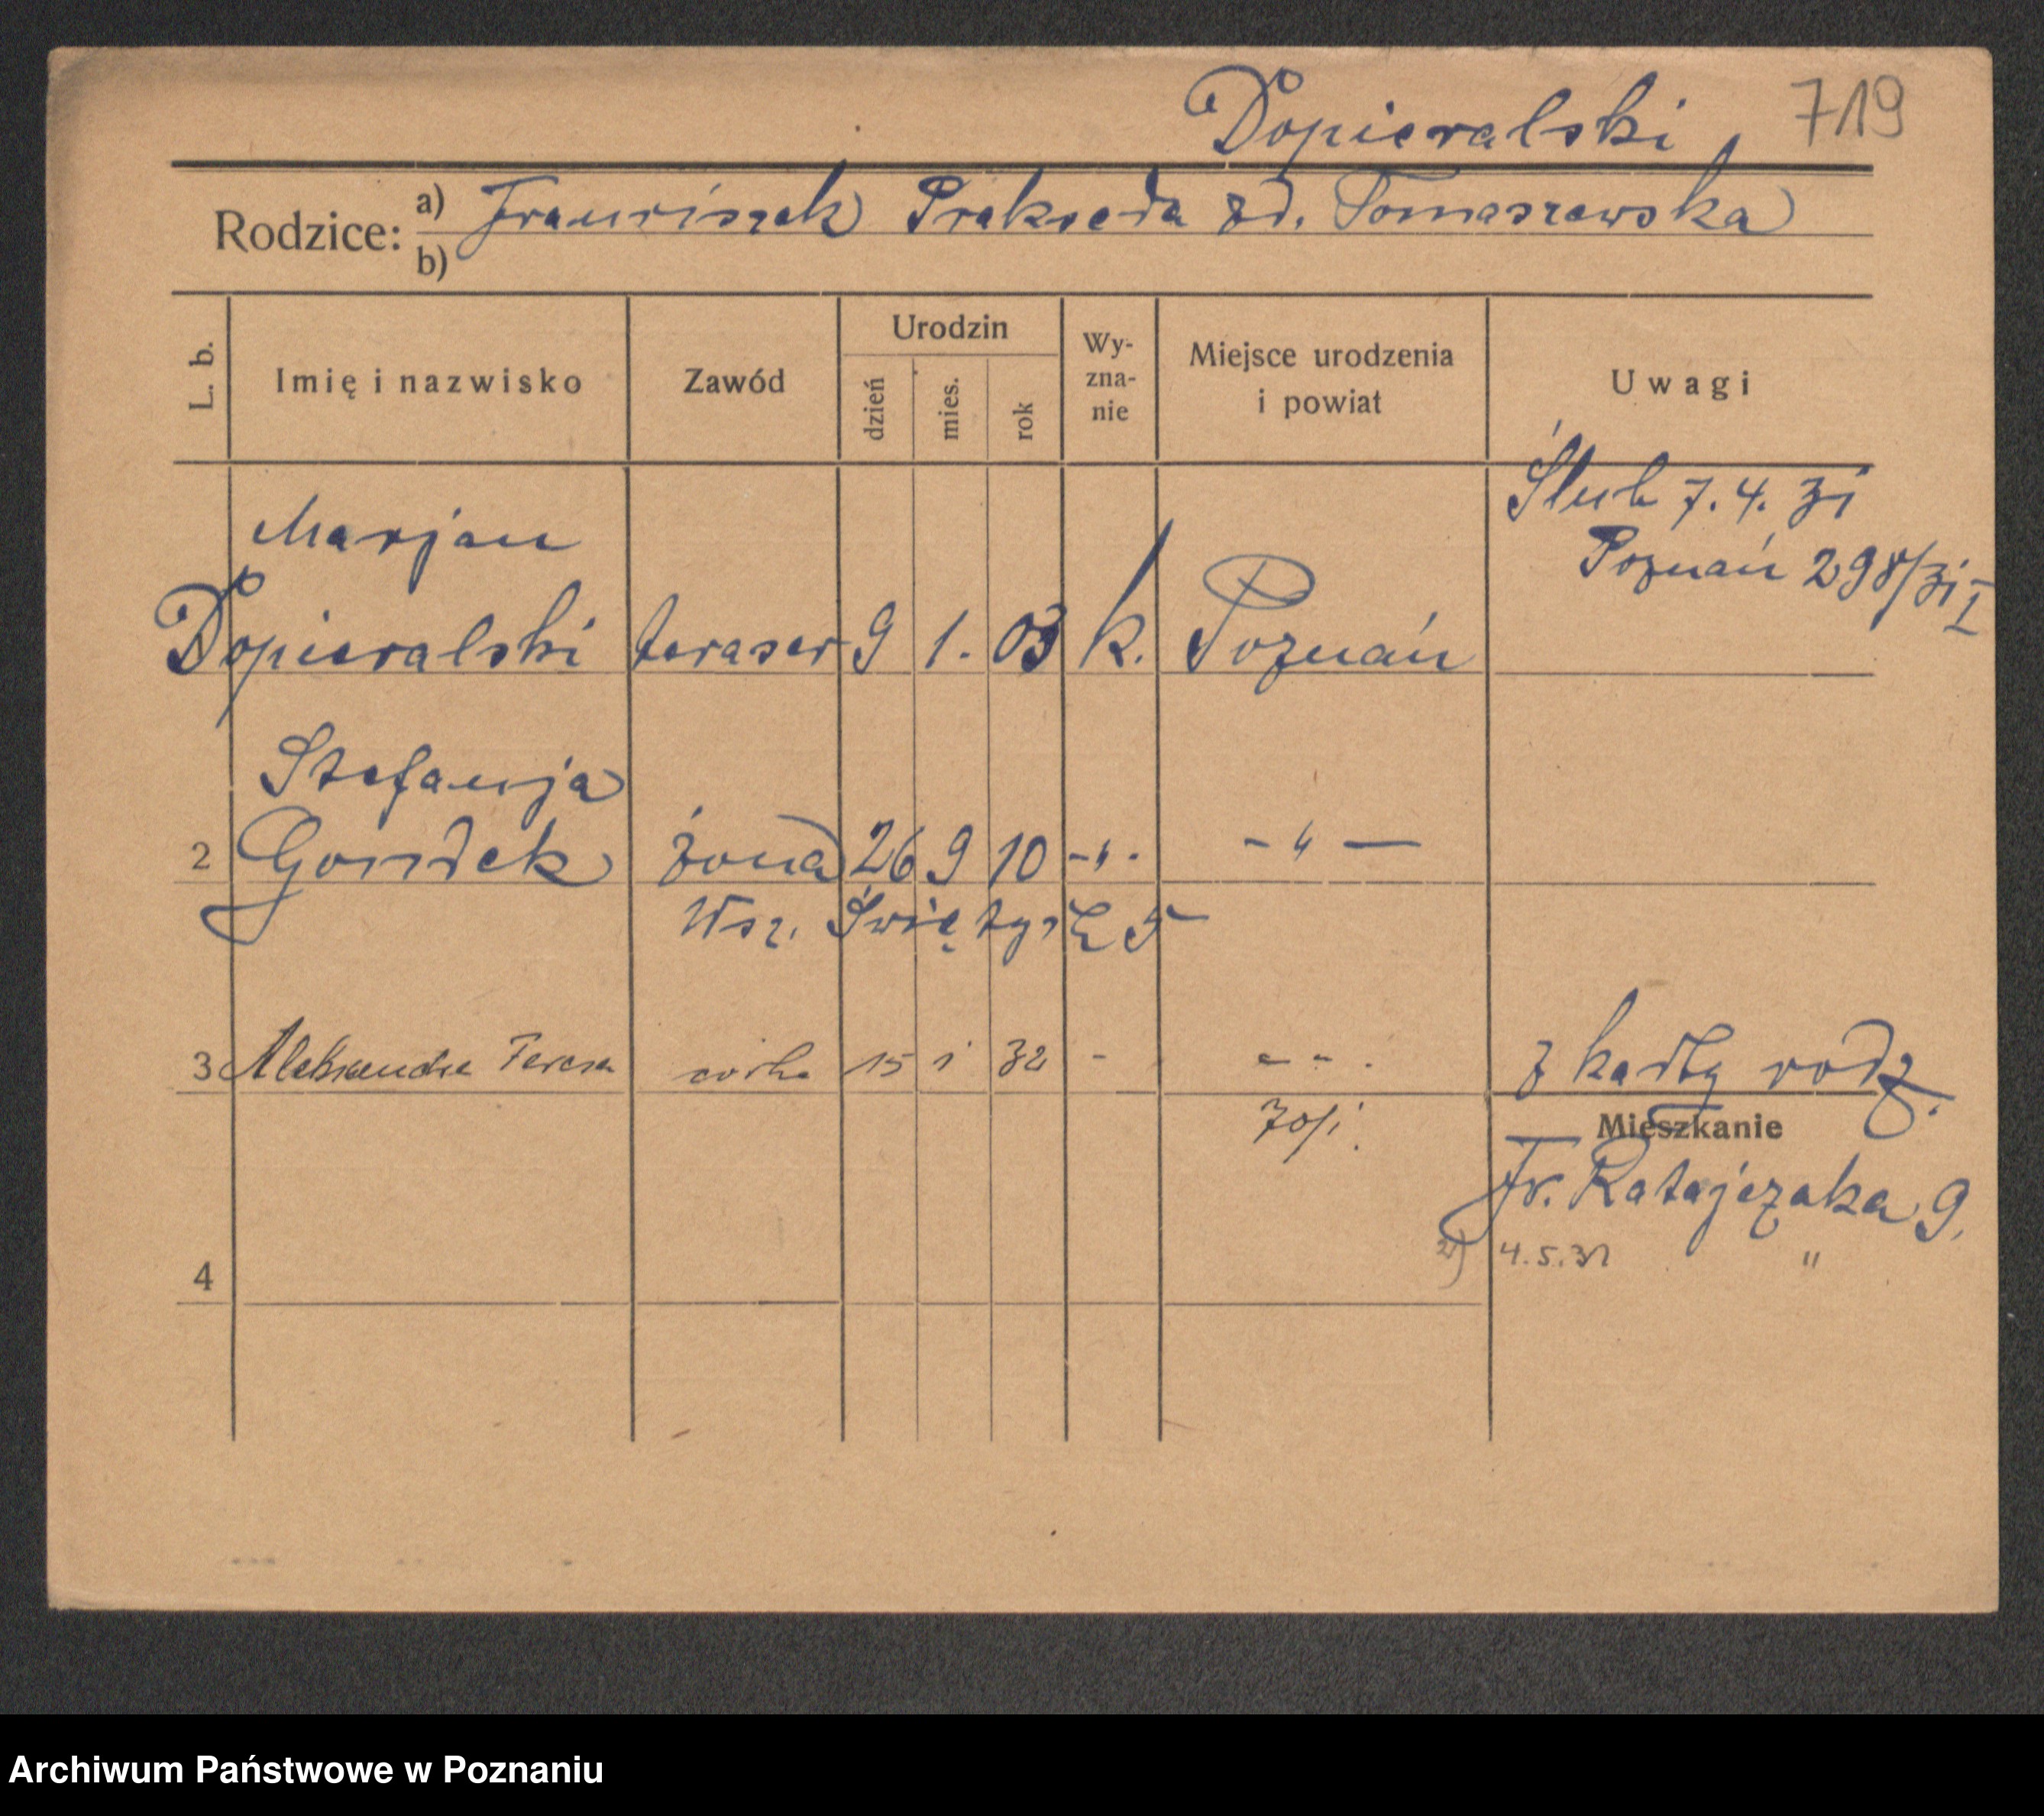 Dopieralski, 719
Rodzice: a) Franciszek Prakseda zd. Tomaszewska
b)
L. b. Imię i nazwisko Zawód Urodzin dzień mies. rok Wy-zna-nie Miejsce urodzenia i powiat Uwagi
Ślub 7.4.31
Marjan
Poznań 298/31 I
Dopieralski teraser 9 1. 03 k. Poznań
Stefanja
2 Gondek żona 26 9 10 -"- - " -
Wsz. Świętych 5
3 Aleksandra Teresa córka 15 1 32 - - - . z karty rodz.
70/1.
Mieszkanie
Fr. Ratajczaka 9.
2) 4.5.31 "
4
Archiwum Państwowe w Poznaniu